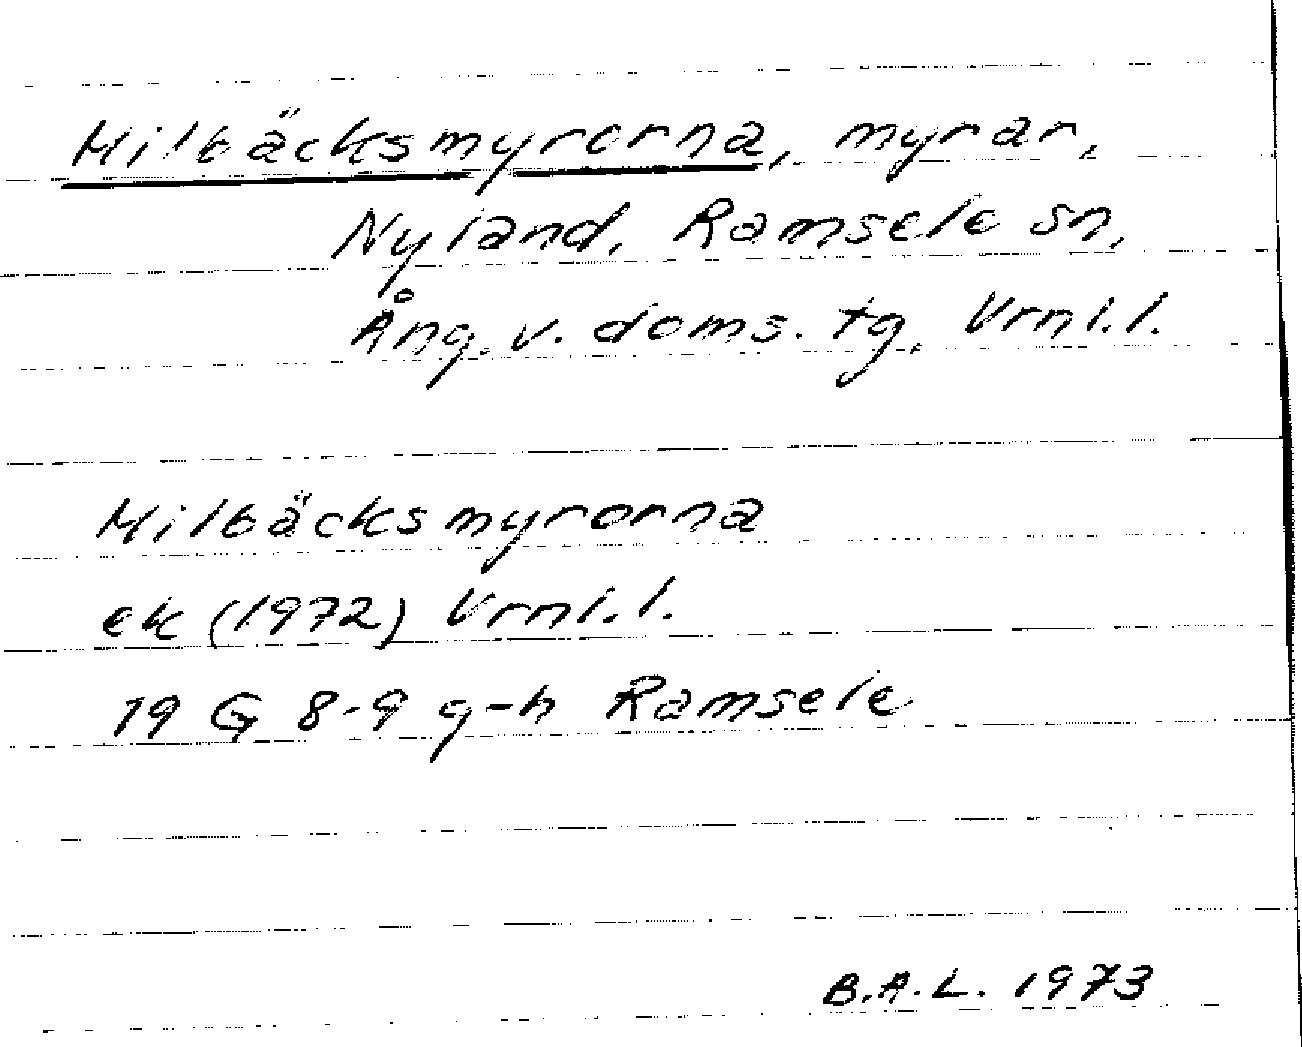 Milbäcksmyrorna, myrar,
Nyland, Ramsele sn,
Ång. v. doms. tg, Vrnl.l.
Milbäcksmyrorna
ek (1972) Vrnl.l.
19 G 8-9 g-h Ramsele
B.A.L. 1973